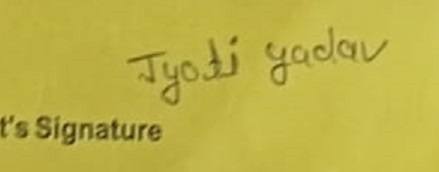 Jyoti yadav
t's Signature